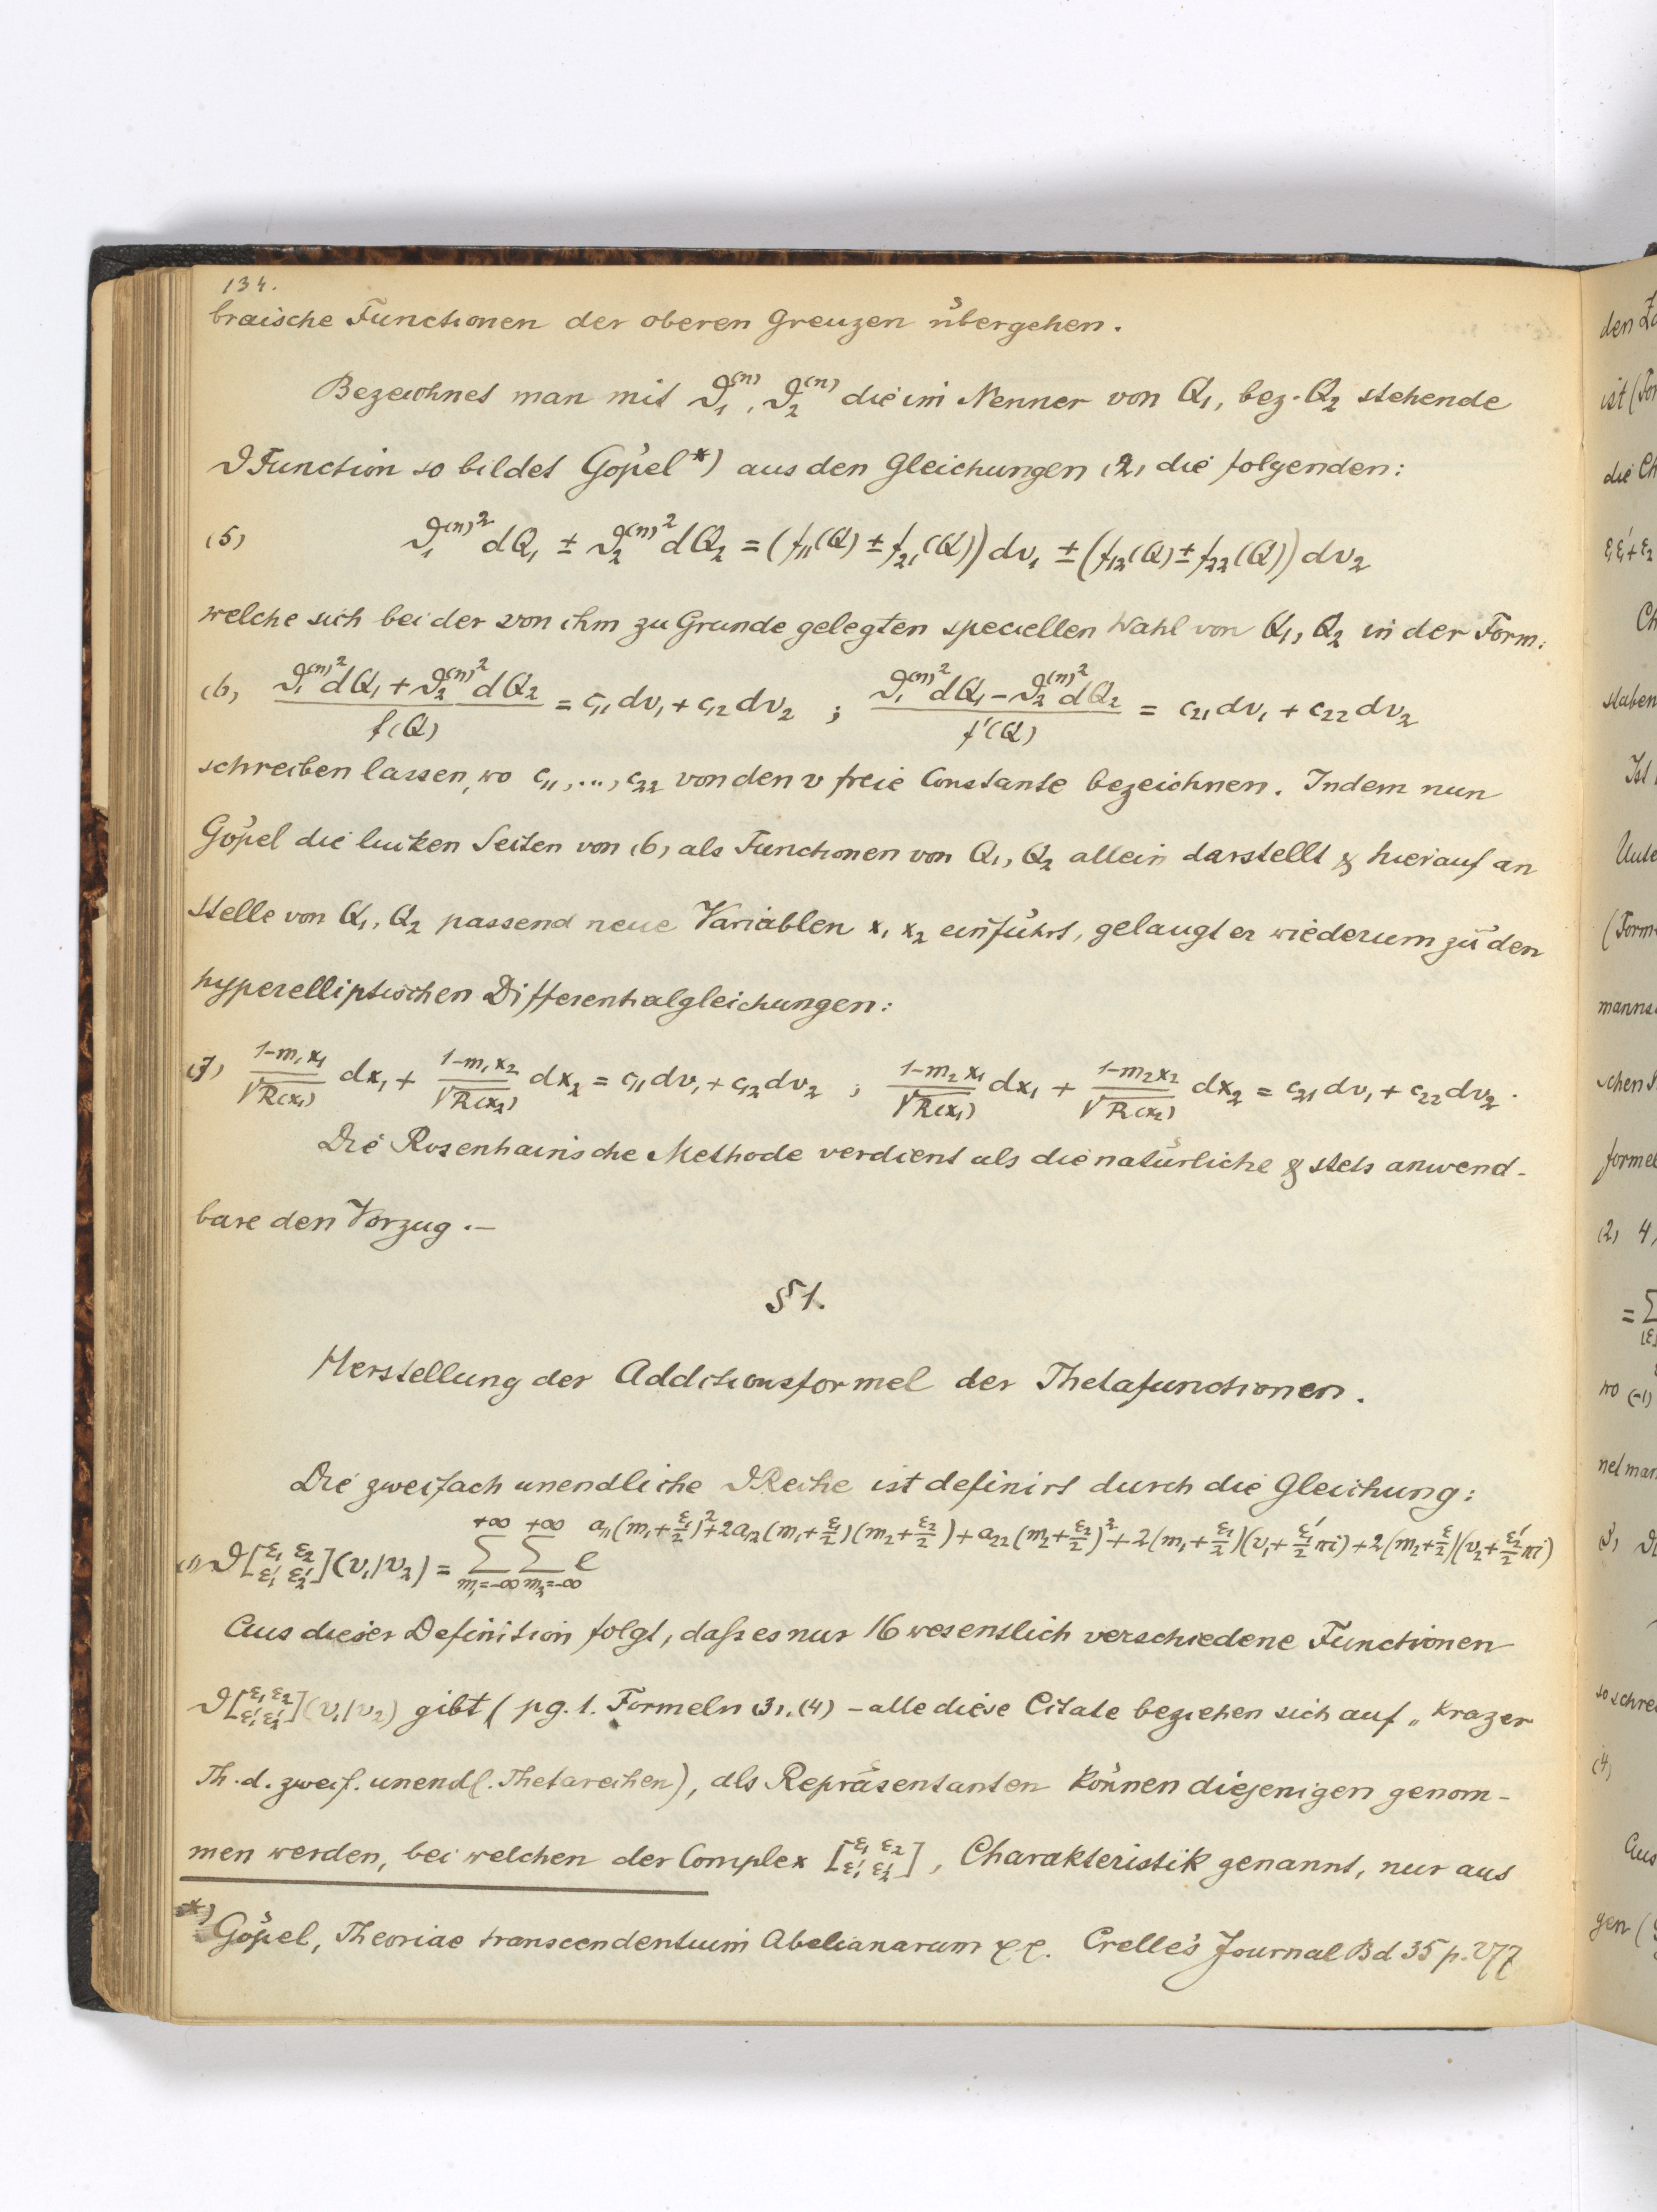 134.
braische Functionen der oberen Grenzen übergehen.
Bezeichnet man mit ϑ₁⁽ⁿ⁾, ϑ₂⁽ⁿ⁾ die im Nenner von Q₁, bez. Q₂ stehende
ϑFunction so bildet Göpel*) aus den Gleichungen (2) die folgenden:
(5) ϑ₁⁽ⁿ⁾² dQ₁ ± ϑ₂⁽ⁿ⁾² dQ₂ = (f₁₁(Q) ± f₂₁(Q)) dv₁ ± (f₁₂(Q) ± f₂₂(Q)) dv₂
welche sich bei der von ihm zu Grunde gelegten speciellen Wahl von Q₁, Q₂ in der Form:
(6) (ϑ₁⁽ⁿ⁾² dQ₁ + ϑ₂⁽ⁿ⁾² dQ₂)/f(Q) = c₁₁ dv₁ + c₁₂ dv₂ ; (ϑ₁⁽ⁿ⁾² dQ₁ − ϑ₂⁽ⁿ⁾² dQ₂)/f'(Q) = c₂₁ dv₁ + c₂₂ dv₂
schreiben lassen, wo c₁₁, ..., c₂₂ von den v freie Constante bezeichnen. Indem nun
Göpel die linken Seiten von (6) als Functionen von Q₁, Q₂ allein darstellt & hierauf an
stelle von Q₁, Q₂ passend neue Variablen x₁ x₂ einführt, gelangt er wiederum zu den
hyperelliptischen Differentialgleichungen:
(7) (1−m₁x₁)/√R(x₁) dx₁ + (1−m₁x₂)/√R(x₂) dx₂ = c₁₁ dv₁ + c₁₂ dv₂ ; (1−m₂x₁)/√R(x₁) dx₁ + (1−m₂x₂)/√R(x₂) dx₂ = c₂₁ dv₁ + c₂₂ dv₂.
Die Rosenhainische Methode verdient als die natürliche & stets anwend-
bare den Vorzug.—
§ 1.
Herstellung der Additionsformel der Thetafunctionen.
Die zweifach unendliche ϑReihe ist definirt durch die Gleichung:
(1) ϑ[ε₁ ε₂ / ε₁' ε₂'](v₁|v₂) = Σ_{m₁=−∞}^{+∞} Σ_{m₂=−∞}^{+∞} e^{a₁₁(m₁+ε₁/2)² + 2a₁₂(m₁+ε₁/2)(m₂+ε₂/2) + a₂₂(m₂+ε₂/2)² + 2(m₁+ε₁/2)(v₁+ε₁'/2 πi) + 2(m₂+ε/2)(v₂+ε₂'/2 πi)}
Aus dieser Definition folgt, daß es nur 16 wesentlich verschiedene Functionen
ϑ[ε₁ ε₂ / ε₁' ε₂'](v₁|v₂) gibt (pg. 1. Formeln (3), (4) – alle diese Citate beziehen sich auf „Krazer
Th. d. zweif. unendl. Thetareihen), als Repräsentanten können diejenigen genom-
men werden, bei welchen der Complex [ε₁ ε₂ / ε₁' ε₂'], Charakteristik genannt, nur aus
*) Göpel, Theoriae transcendentium Abelianarum Crelle's Journal Bd 35 p. 277